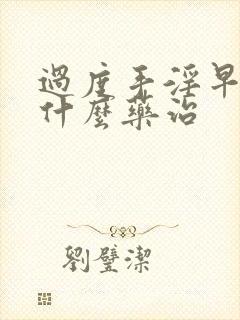 過度手淫早
什麼藥治
劉璧潔